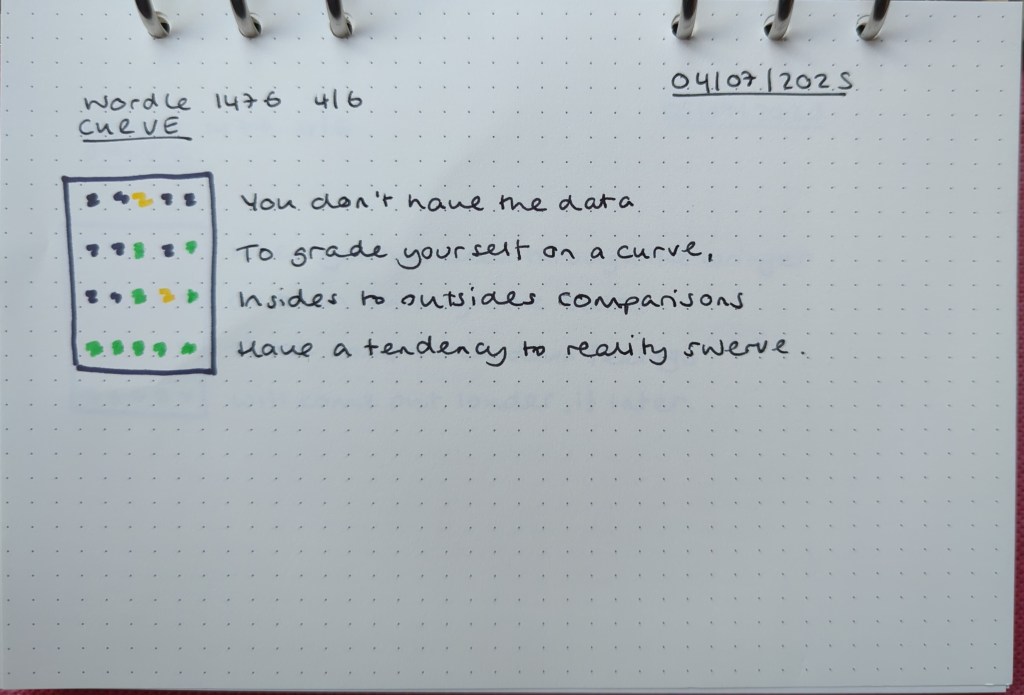 Wordle 1476 4/6
04/07/2025
CURVE
You don't have the data
To grade yourself on a curve,
Insides to outsides comparisons
Have a tendency to reality swerve.